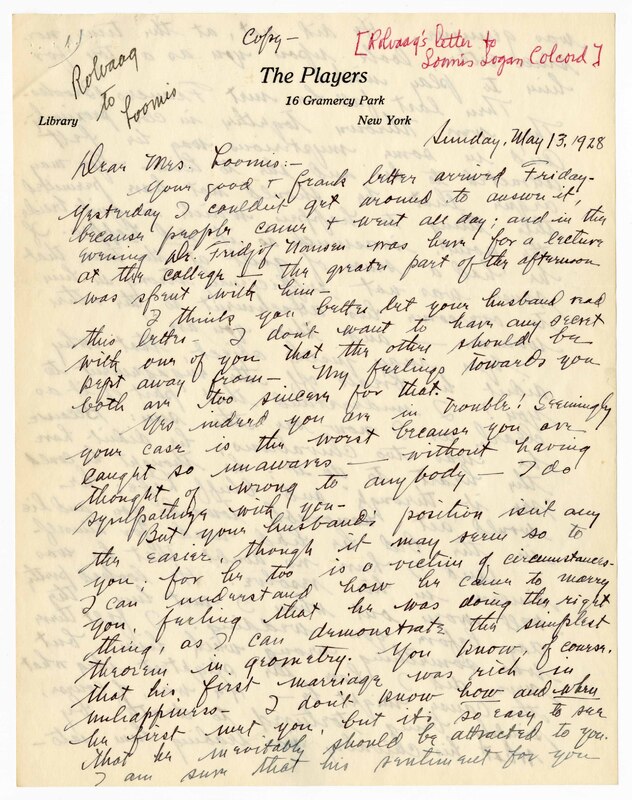 Copy-
[Rolvaag's letter to
Loomis Logan Colcord]
Rolvaag
to
Loomis
The Players
16 Gramercy Park
Library New York
Sunday, May 13, 1928
Dear Mrs. Loomis:-
Your good & frank letter arrived Friday-
Yesterday I couldn't get around to answer it,
because people came & went all day; and in the
evening Dr. Fridjof Nansen was here for a lecture
at the college - the greater part of the afternoon
was spent with him-
I think you better let your husband read
this letter- I don't want to have any secret
with one of you that the other should be
kept away from- My feelings towards you
both are too sincere for that.
Yes indeed you are in trouble! Seemingly
your case is the worst because you are
caught so unawares - without having
thought of wrong to anybody - I do
sympathize with you-
But your husband's position isn't any
the easier, though it may seem so to
you; for he too is a victim of circumstances-
I can understand how he came to marry
you, feeling that he was doing the right
thing, as I can demonstrate the simplest
theorem in geometry. You know, of course,
that his first marriage was rich in
unhappiness- I don't know how and when
he first met you, but it's so easy to see
that he inevitably should be attracted to you.
I am sure that his sentiment for you